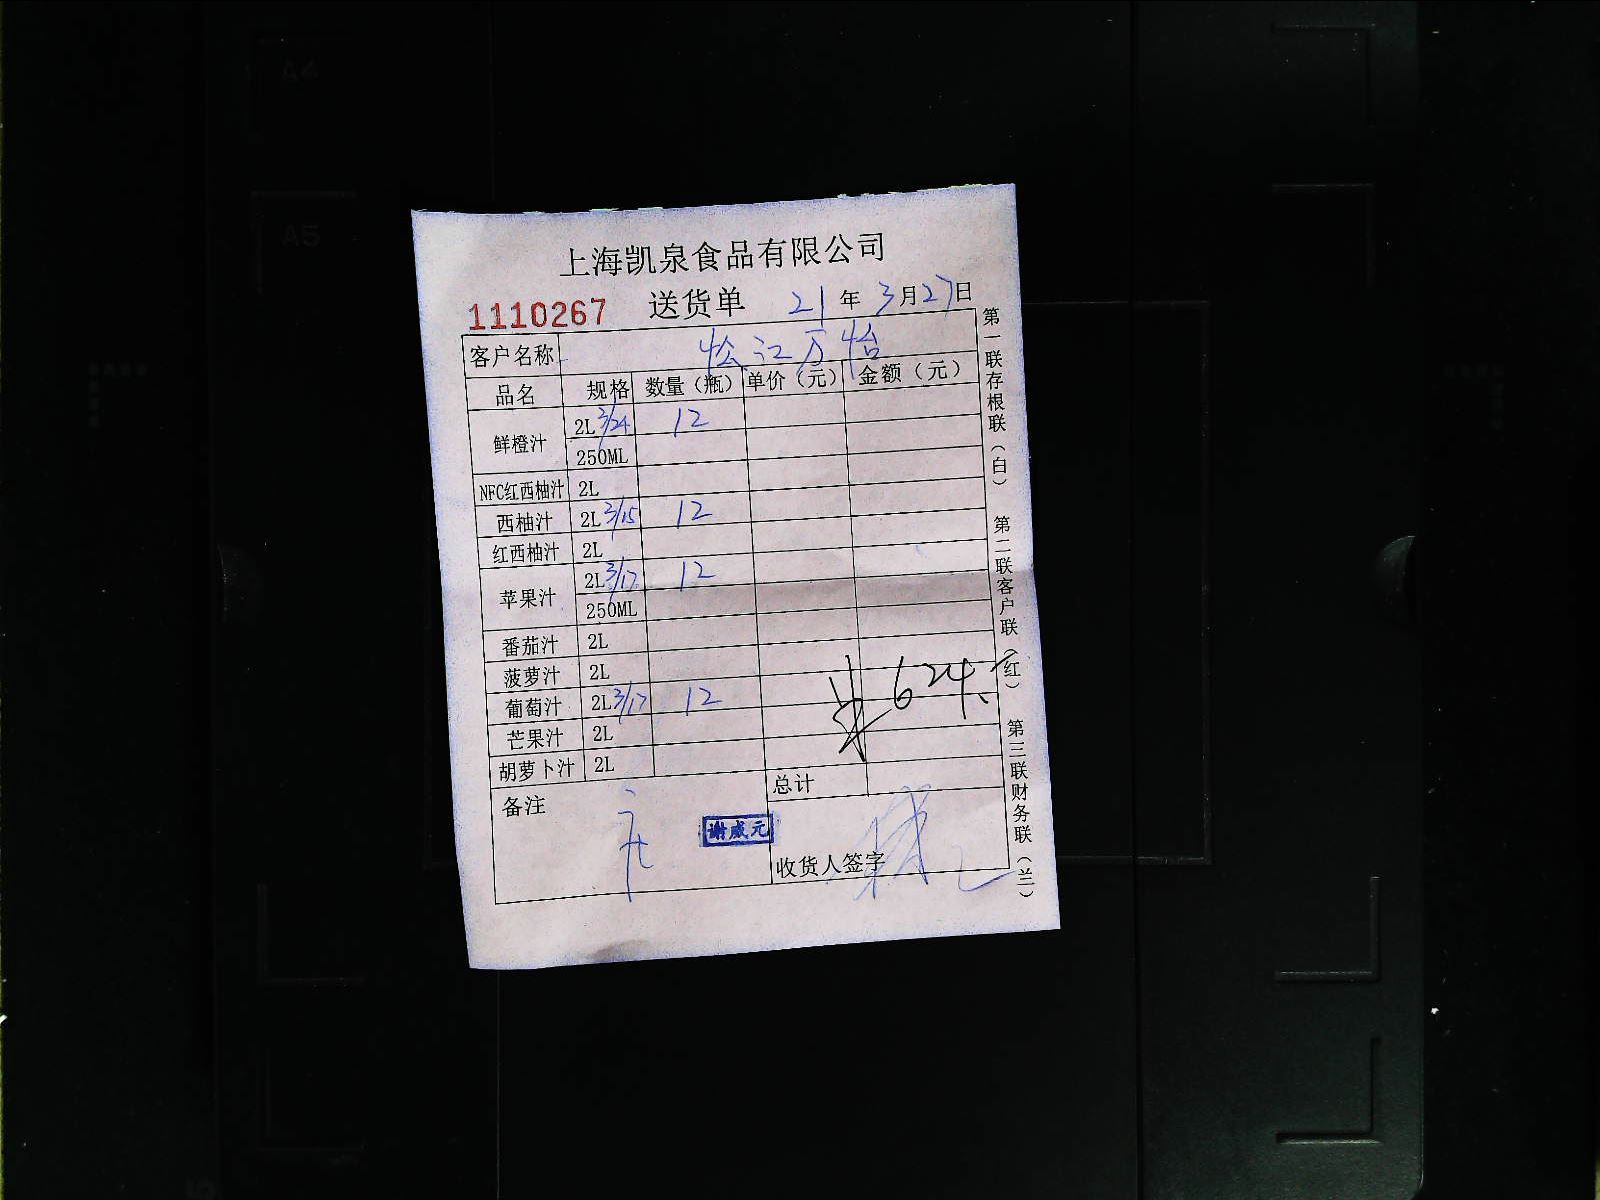 上海凯泉食品有限公司
1110267 送货单 21年3月27日
客户名称 松江万怡
品名 规格 数量（瓶） 单价（元） 金额（元）
鲜橙汁 2L 3/24 12
250ML
NFC红西柚汁 2L
西柚汁 2L 3/15 12
红西柚汁 2L
苹果汁 2L 3/17 12
250ML
番茄汁 2L
菠萝汁 2L
葡萄汁 2L 3/17 12
芒果汁 2L
胡萝卜汁 2L
624
总计
备注
谢成元
收货人签字
第一联存根联（白） 第二联客户联（红） 第三联财务联（兰）
A4
A5